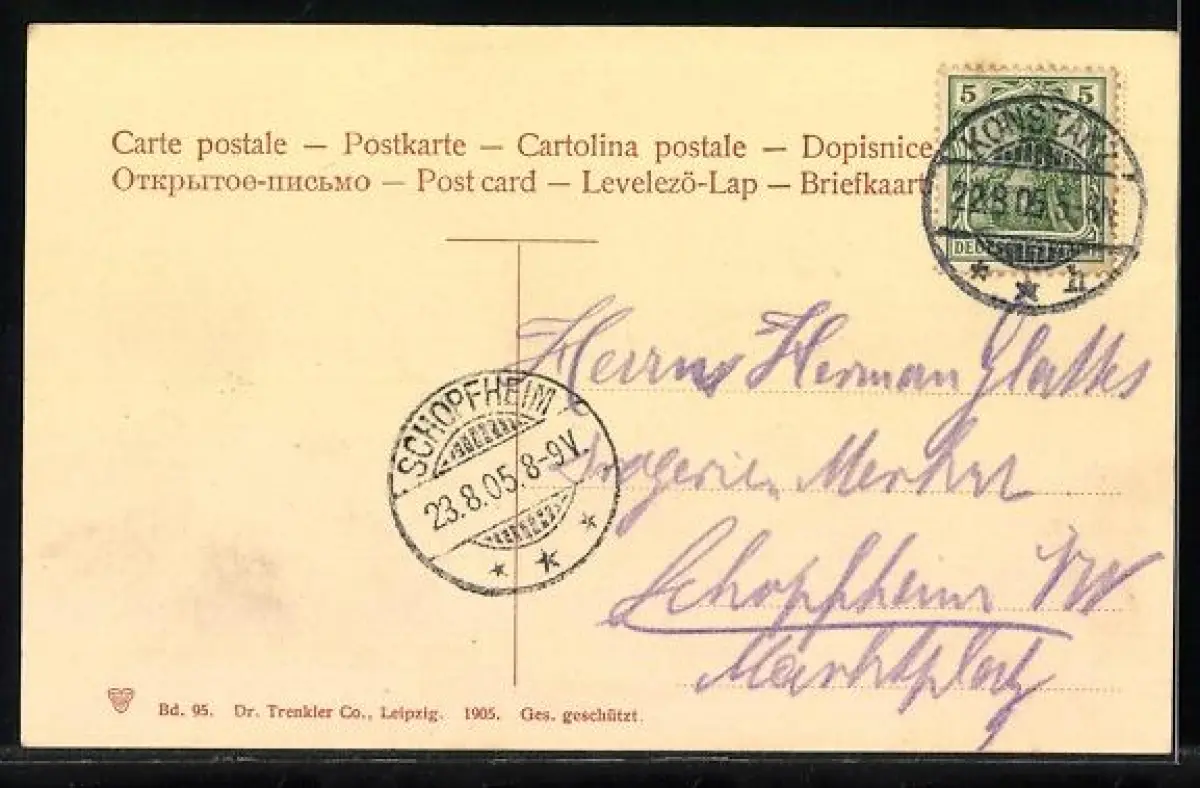 Carte postale — Postkarte — Cartolina postale — Dopisnice
Открытое-письмо — Post card — Levelező-Lap — Briefkaart
5 5
KONSTANZ
22.8.05
h
Herrn Herman
SCHOPFHEIM
23.8.05. 8-9V.
Drogerie Merkel
Schopfheim
Marktplatz
Bd. 95. Dr. Trenkler Co., Leipzig. 1905. Ges. geschützt.